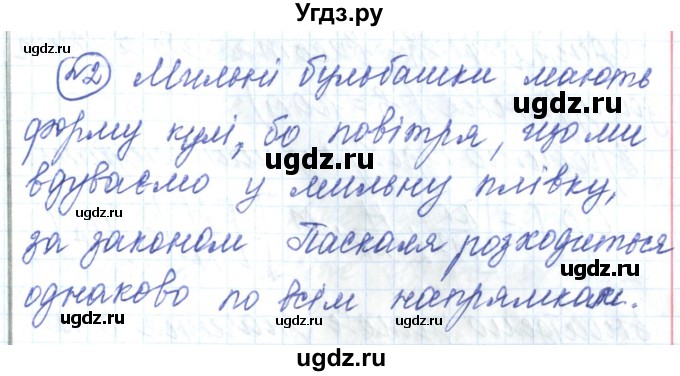 Угдз.ру
№2 Мильні бульбашки мають
форму кулі, бо повітря, що ми
вдуваємо у мильну плівку,
за законом Паскаля розходиться
однаково по всім напрямкам.
ugdz.ru
ugdz.ru
ugdz.ru
ugdz.ru
ugdz.ru
ugdz.ru
ugdz.ru
ugdz.ru
ugdz.ru
ugdz.ru